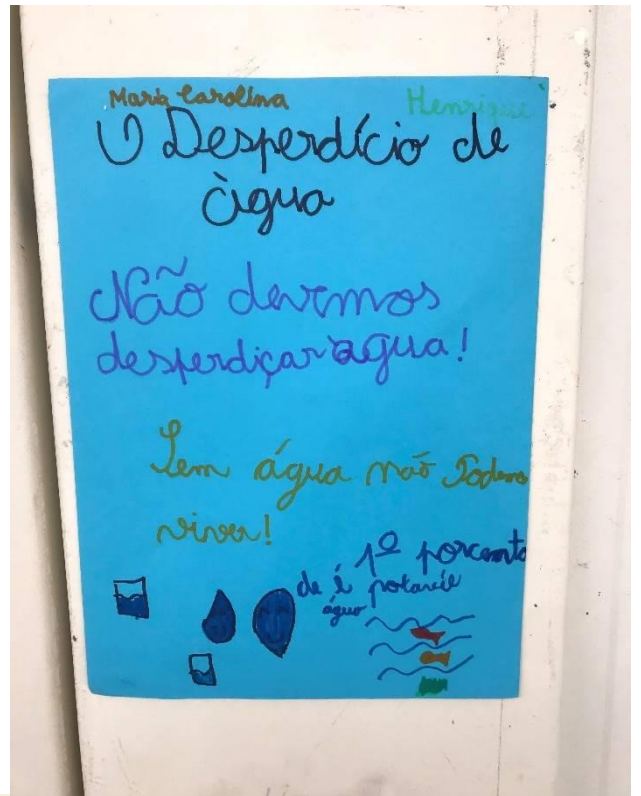 Maria Carolina Henrique
O Desperdício de
àgua
Não devemos
desperdiçar água!
Sem água não Podemos
viver!
1º porcento
de água é potavél